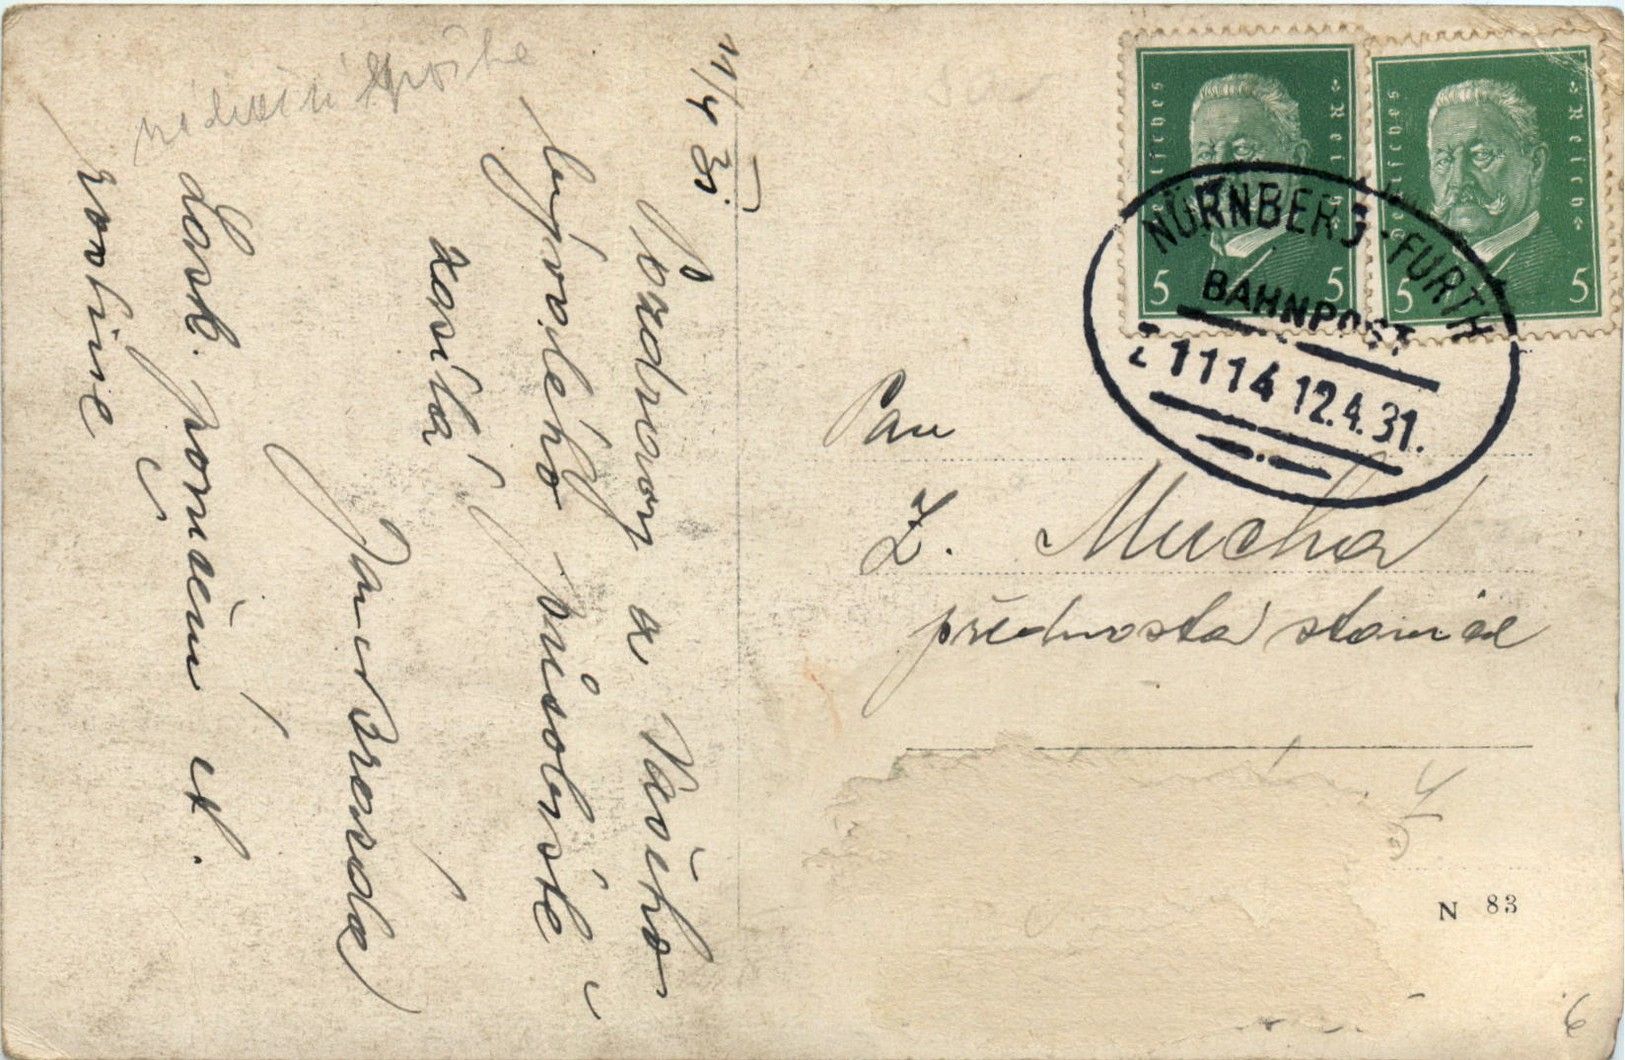 11/4 31
Pozdrav a Vašeho
bývalého působiště
zasílá
Jan Brosda
Lask. poručení ct.
rodině
Deutsches Reich
5 5
Deutsches Reich
5 5
NÜRNBERG-FÜRTH
BAHNPOST
Z 1114 12.4.31.
Pan
Z. Mucha
přednosta stanice
N 83
6